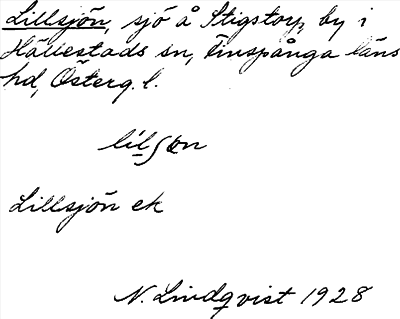 Lillsjön, sjö å Stigstorp, by i
Hällestads sn, Finspånga läns
hd, Österg. l.
lìlʃön
Lillsjön ek
N. Lindqvist 1928